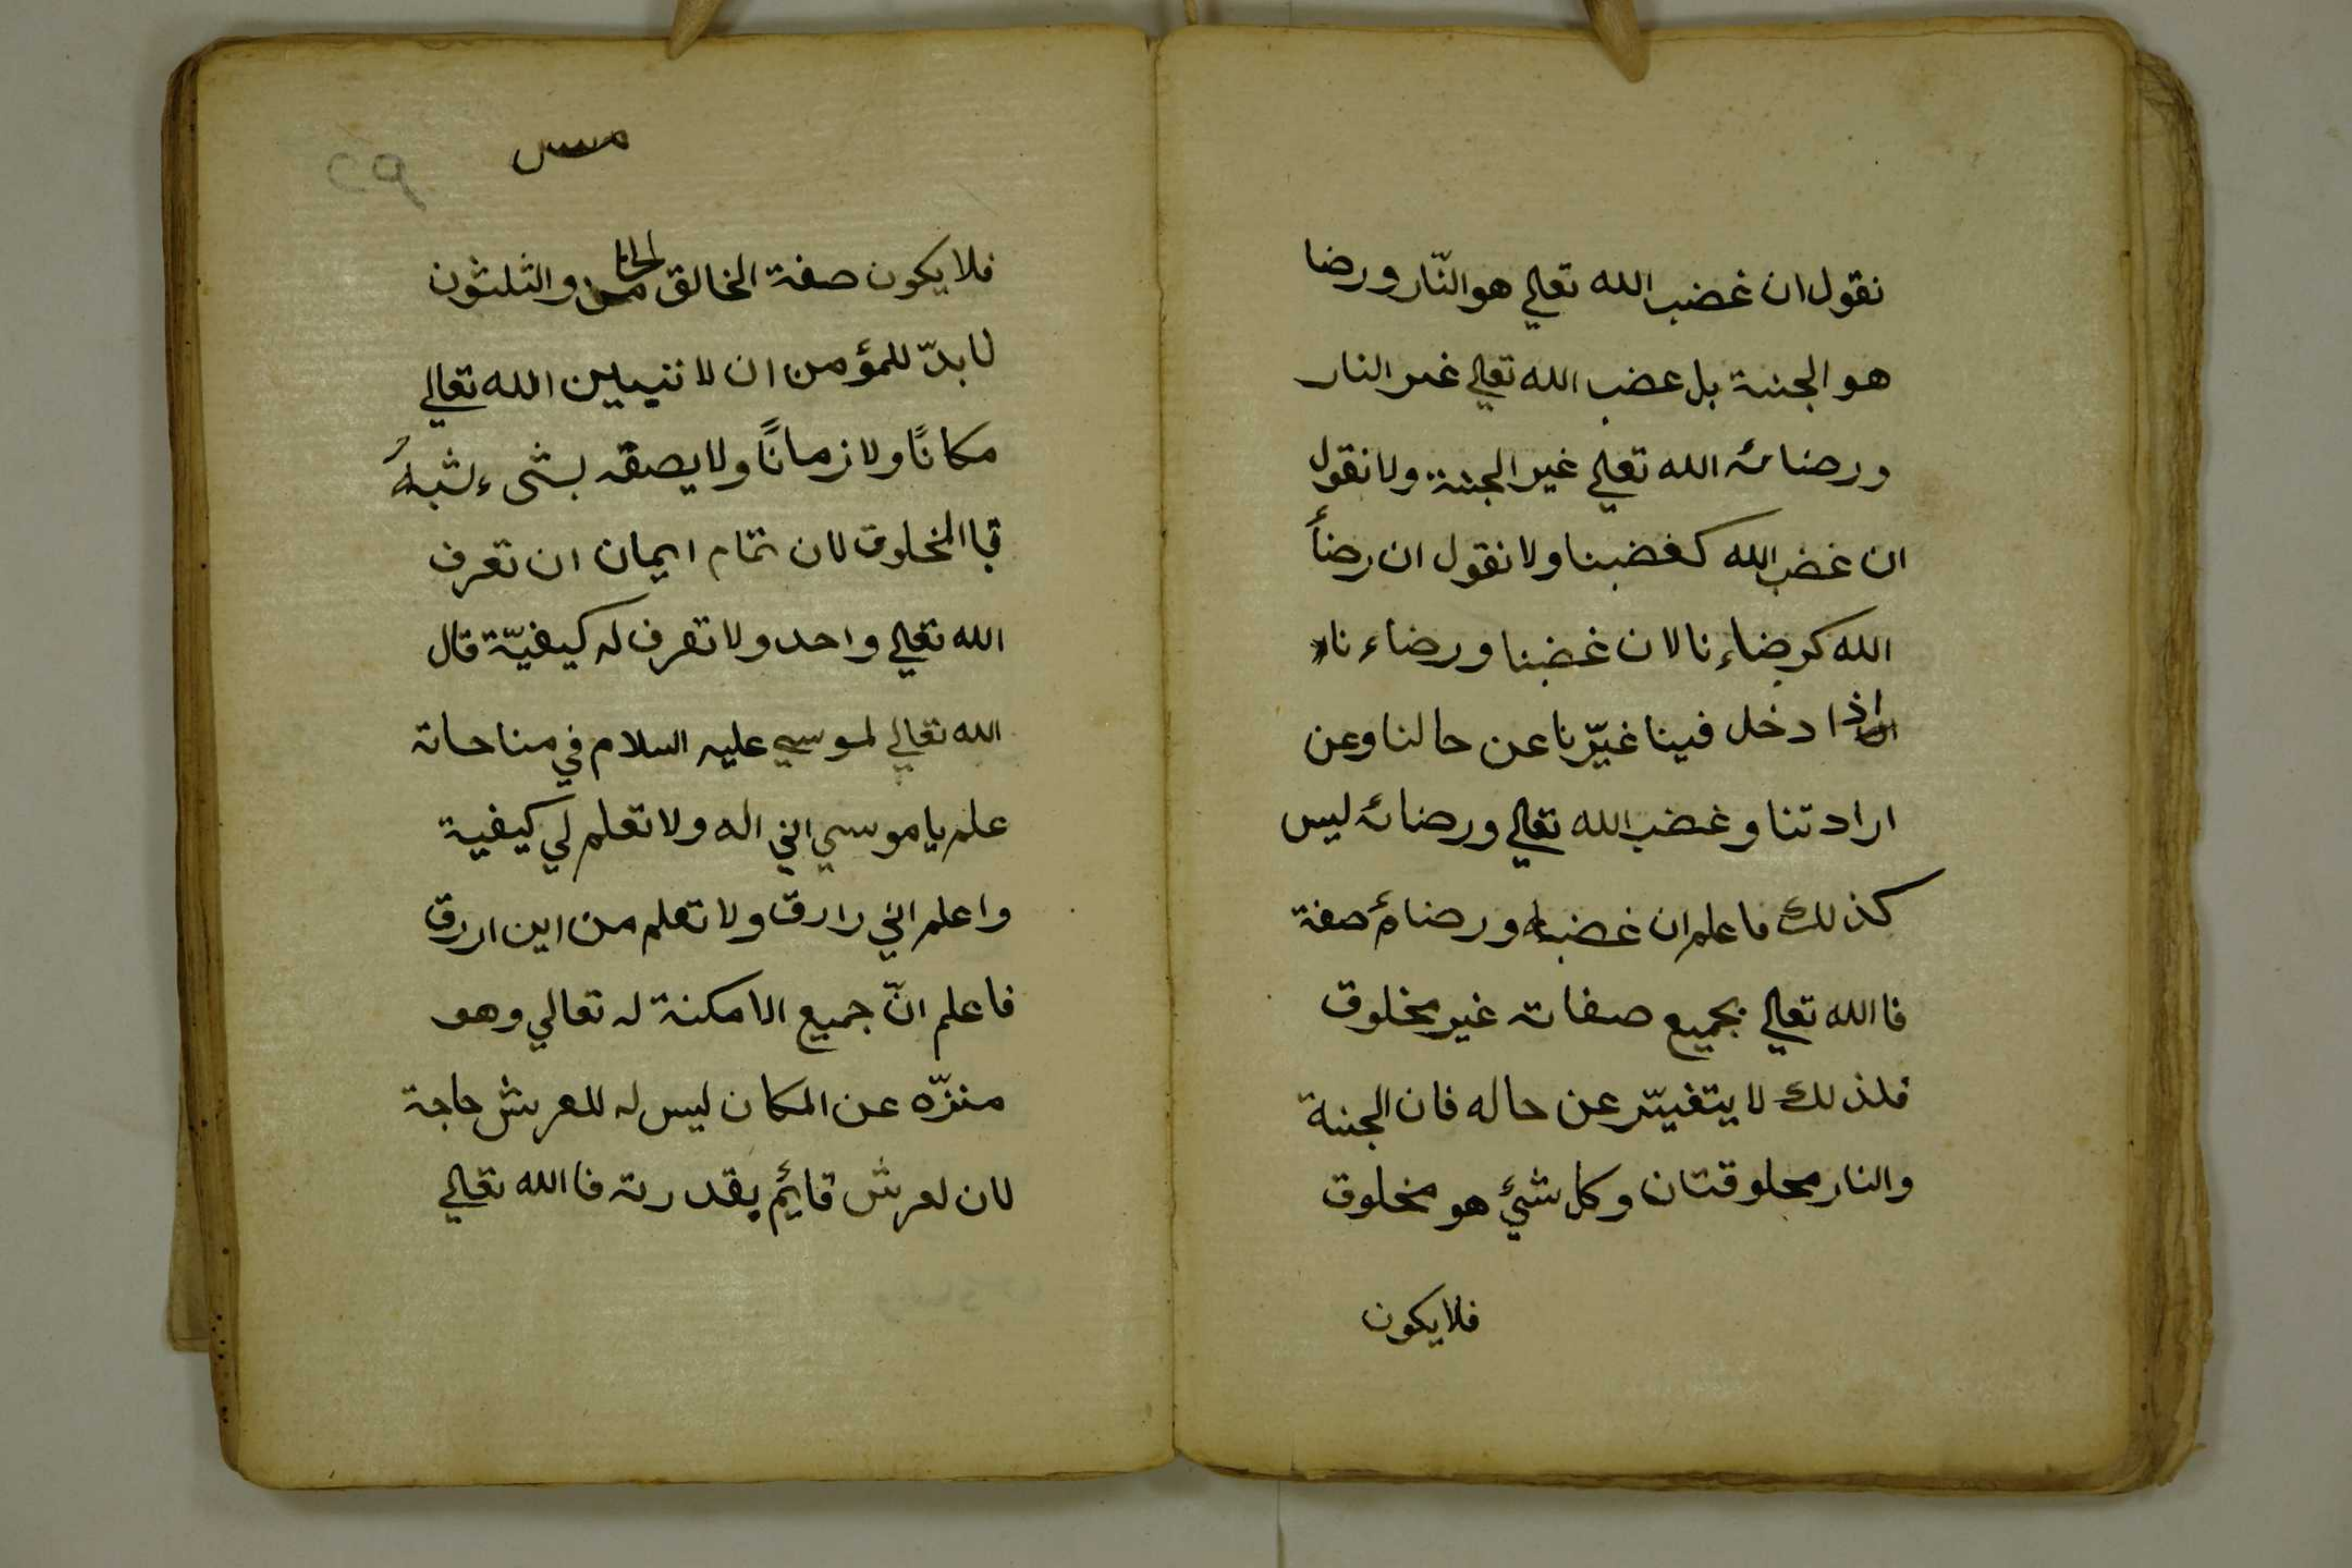 نقول ان غضب الله تعلي هو النّار ورضا
هو الجنة بل عضب الله تعلي غير النار
ورضائه الله تعلي غير الجنة ولا نقول
ان غضب الله كغضبنا ولا نقول ان رضأ
الله كرضاء نا لان غضبنا ورضاء نا
اذا دخل فينا غيّرنا عن حالنا وعن
ارادتنا وغضب الله تعالي ورضائه ليس
كذلك فاعلم ان غضبه ورضائه صفة
فا الله تعالي بجميع صفاته غير مخلوق
فلذلك لا يتغيّر عن حاله فان الجنة
والنار مخلوقتان وكل شئ هو مخلوق
فلا يكون
فلا يكون صفة الخالق الخامس والثلثون
لا بدّ للمؤمن ان لا تبيلين الله تعالي
مكانًا ولا زمانًا ولا يصفه بشىء يشبهُ
قبا المخلوق لان تمام ايمان ان تعرف
الله تعالي واحد ولا تعرف له كيفيّة قال
الله تعالي لموسي عليه السلام في مناحاته
علم يا موسي اني اله ولا تعلم لي كيفية
واعلم اني رارق ولا تعلم من اين اررق
فاعلم انّ جميع الامكنة له تعالي وهو
منزّه عن المكان ليس له للعرش حاجة
لان لعرش قائم بقدرته فا الله تعالي